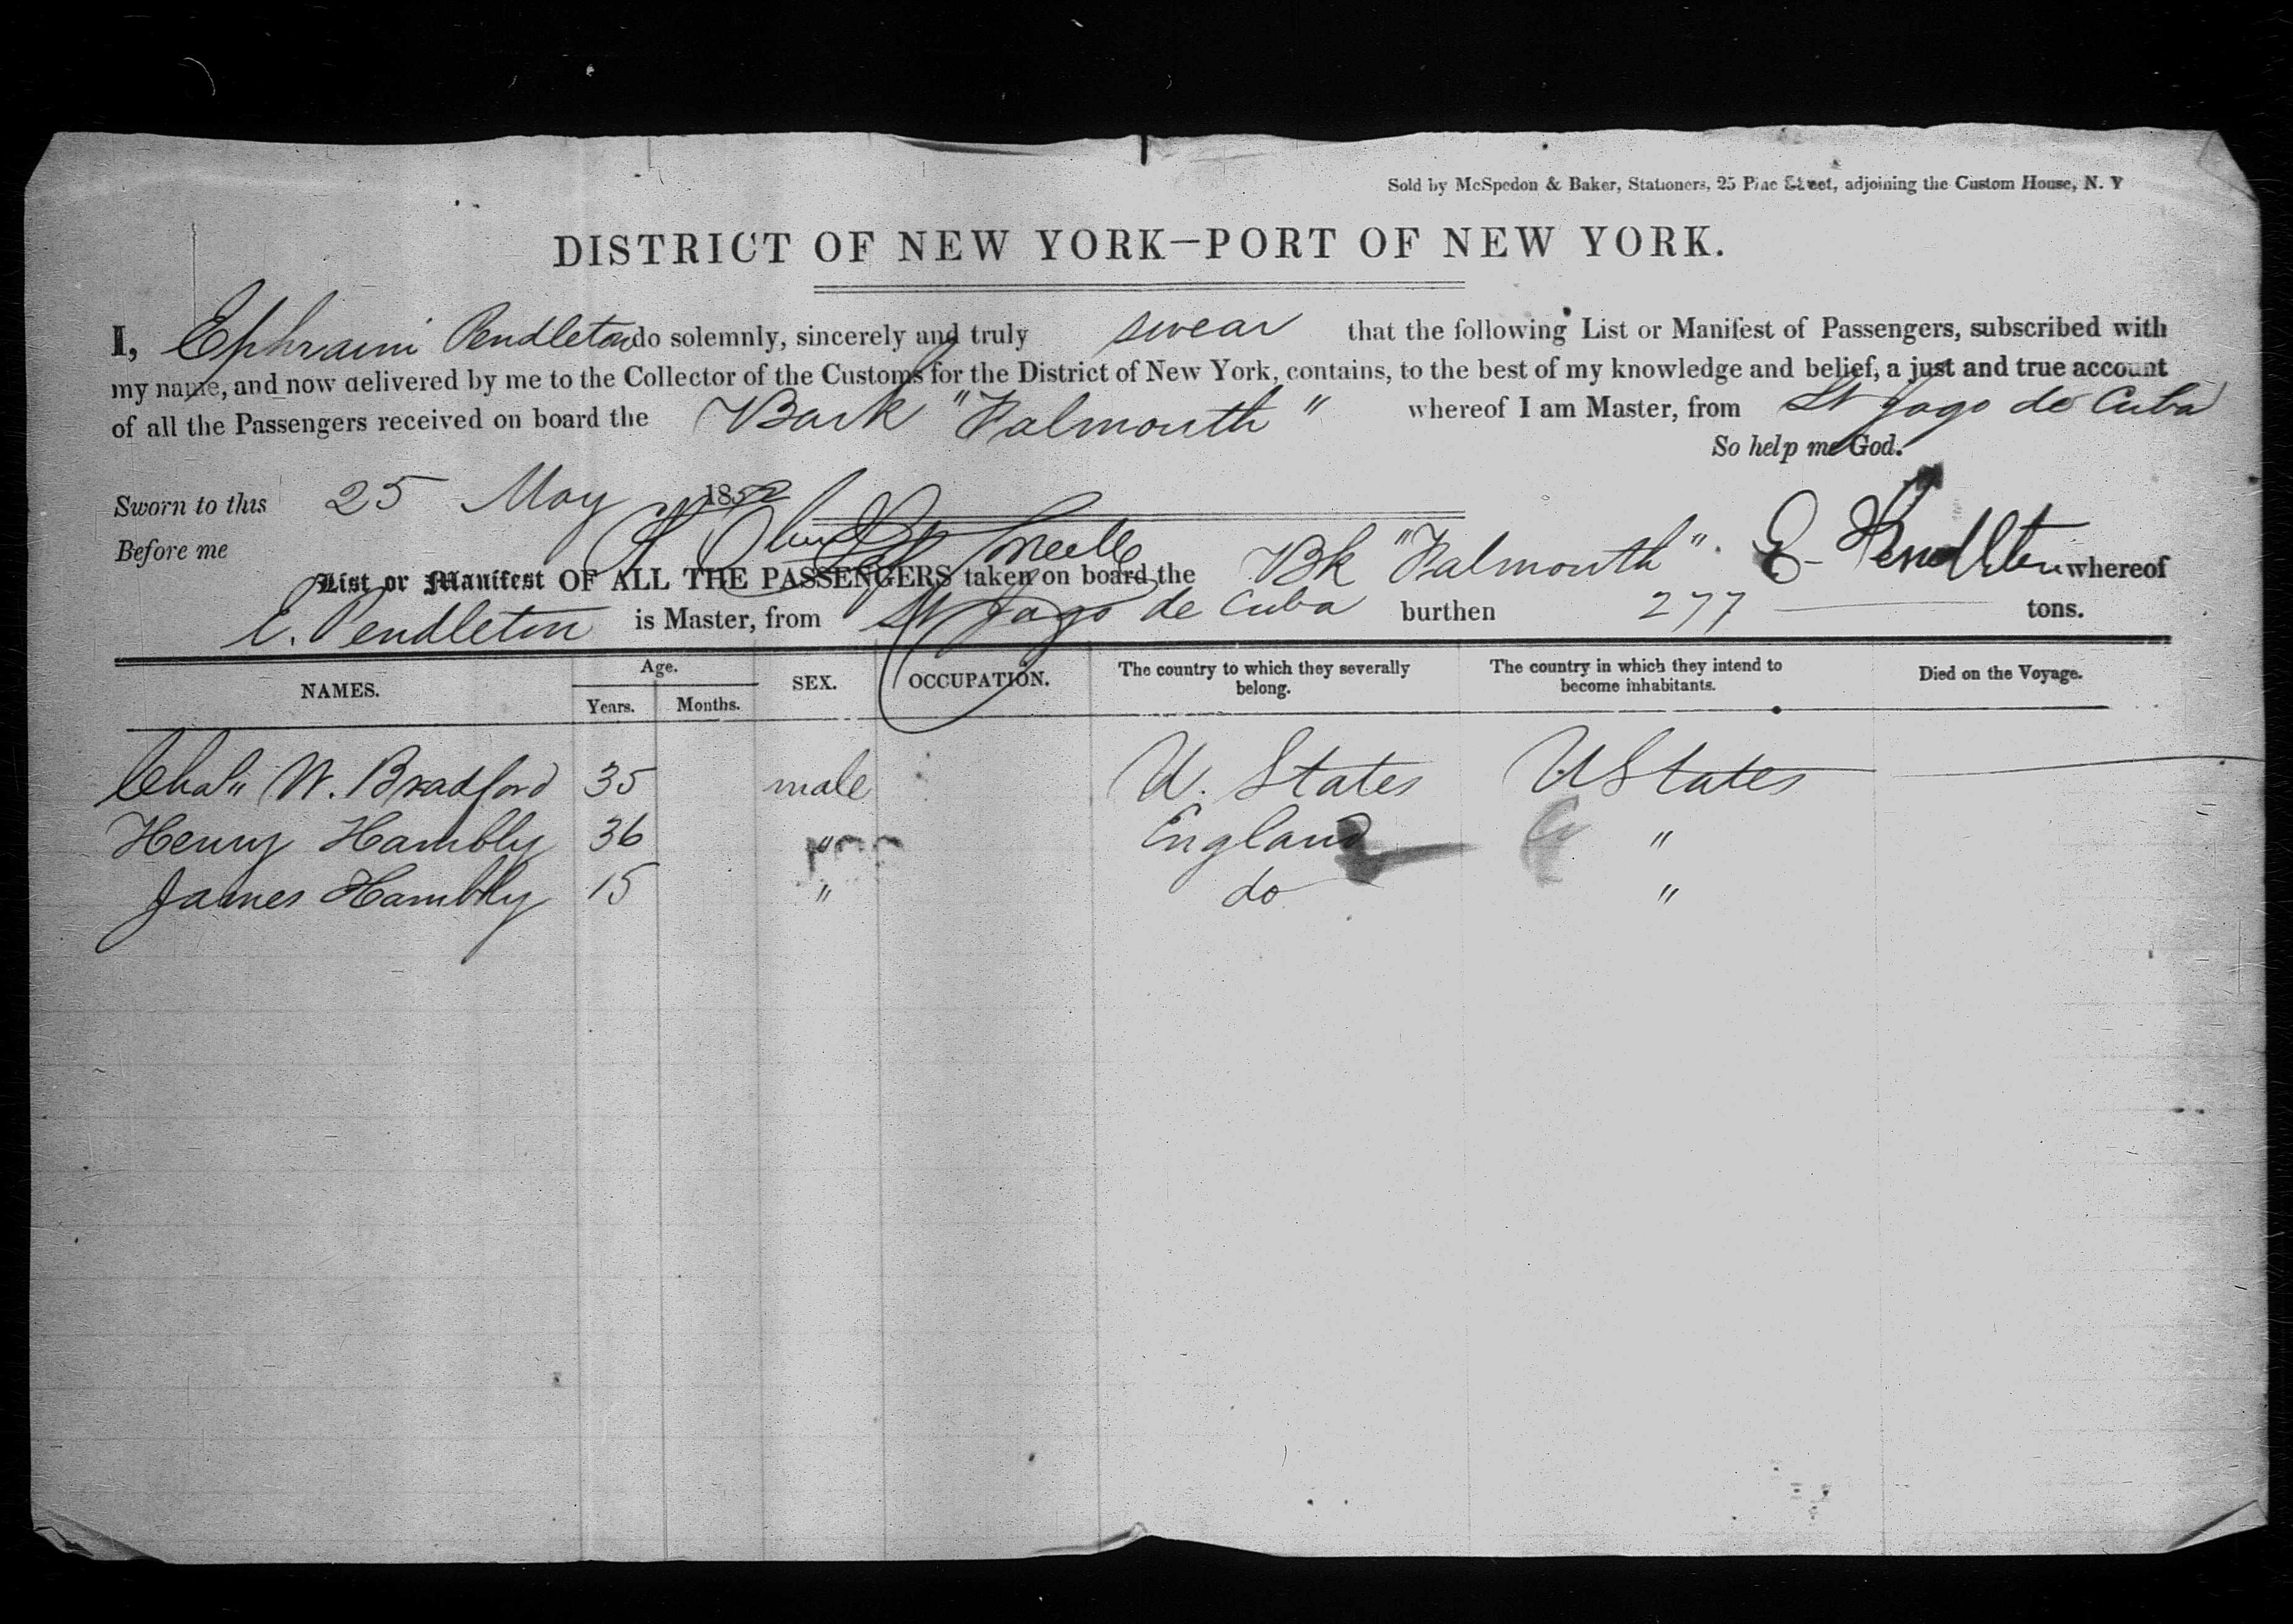 Sold by McSpedon & Baker, Stationers, 25 Pine Street, adjoining the Custom House, N. Y
DISTRICT OF NEW YORK—PORT OF NEW YORK.
I, Ephraim Pendleton do solemnly, sincerely and truly swear that the following List or Manifest of Passengers, subscribed with
my name, and now delivered by me to the Collector of the Customs for the District of New York, contains, to the best of my knowledge and belief, a just and true account
of all the Passengers received on board the Bark "Falmouth" whereof I am Master, from St Jago de Cuba
So help me God.
Sworn to this 25 May 1852
Before me
E. Pendleton
List or Manifest OF ALL THE PASSENGERS taken on board the Bk "Falmouth" whereof
E. Pendleton is Master, from St Jago de Cuba burthen 277 tons.
NAMES. Age. Years. Months. SEX. OCCUPATION. The country to which they severally belong. The country in which they intend to become inhabitants. Died on the Voyage.
Chas" W. Bradford 35 male U. States U States
Henry Hambly 36 " England "
James Hambly 15 " do "